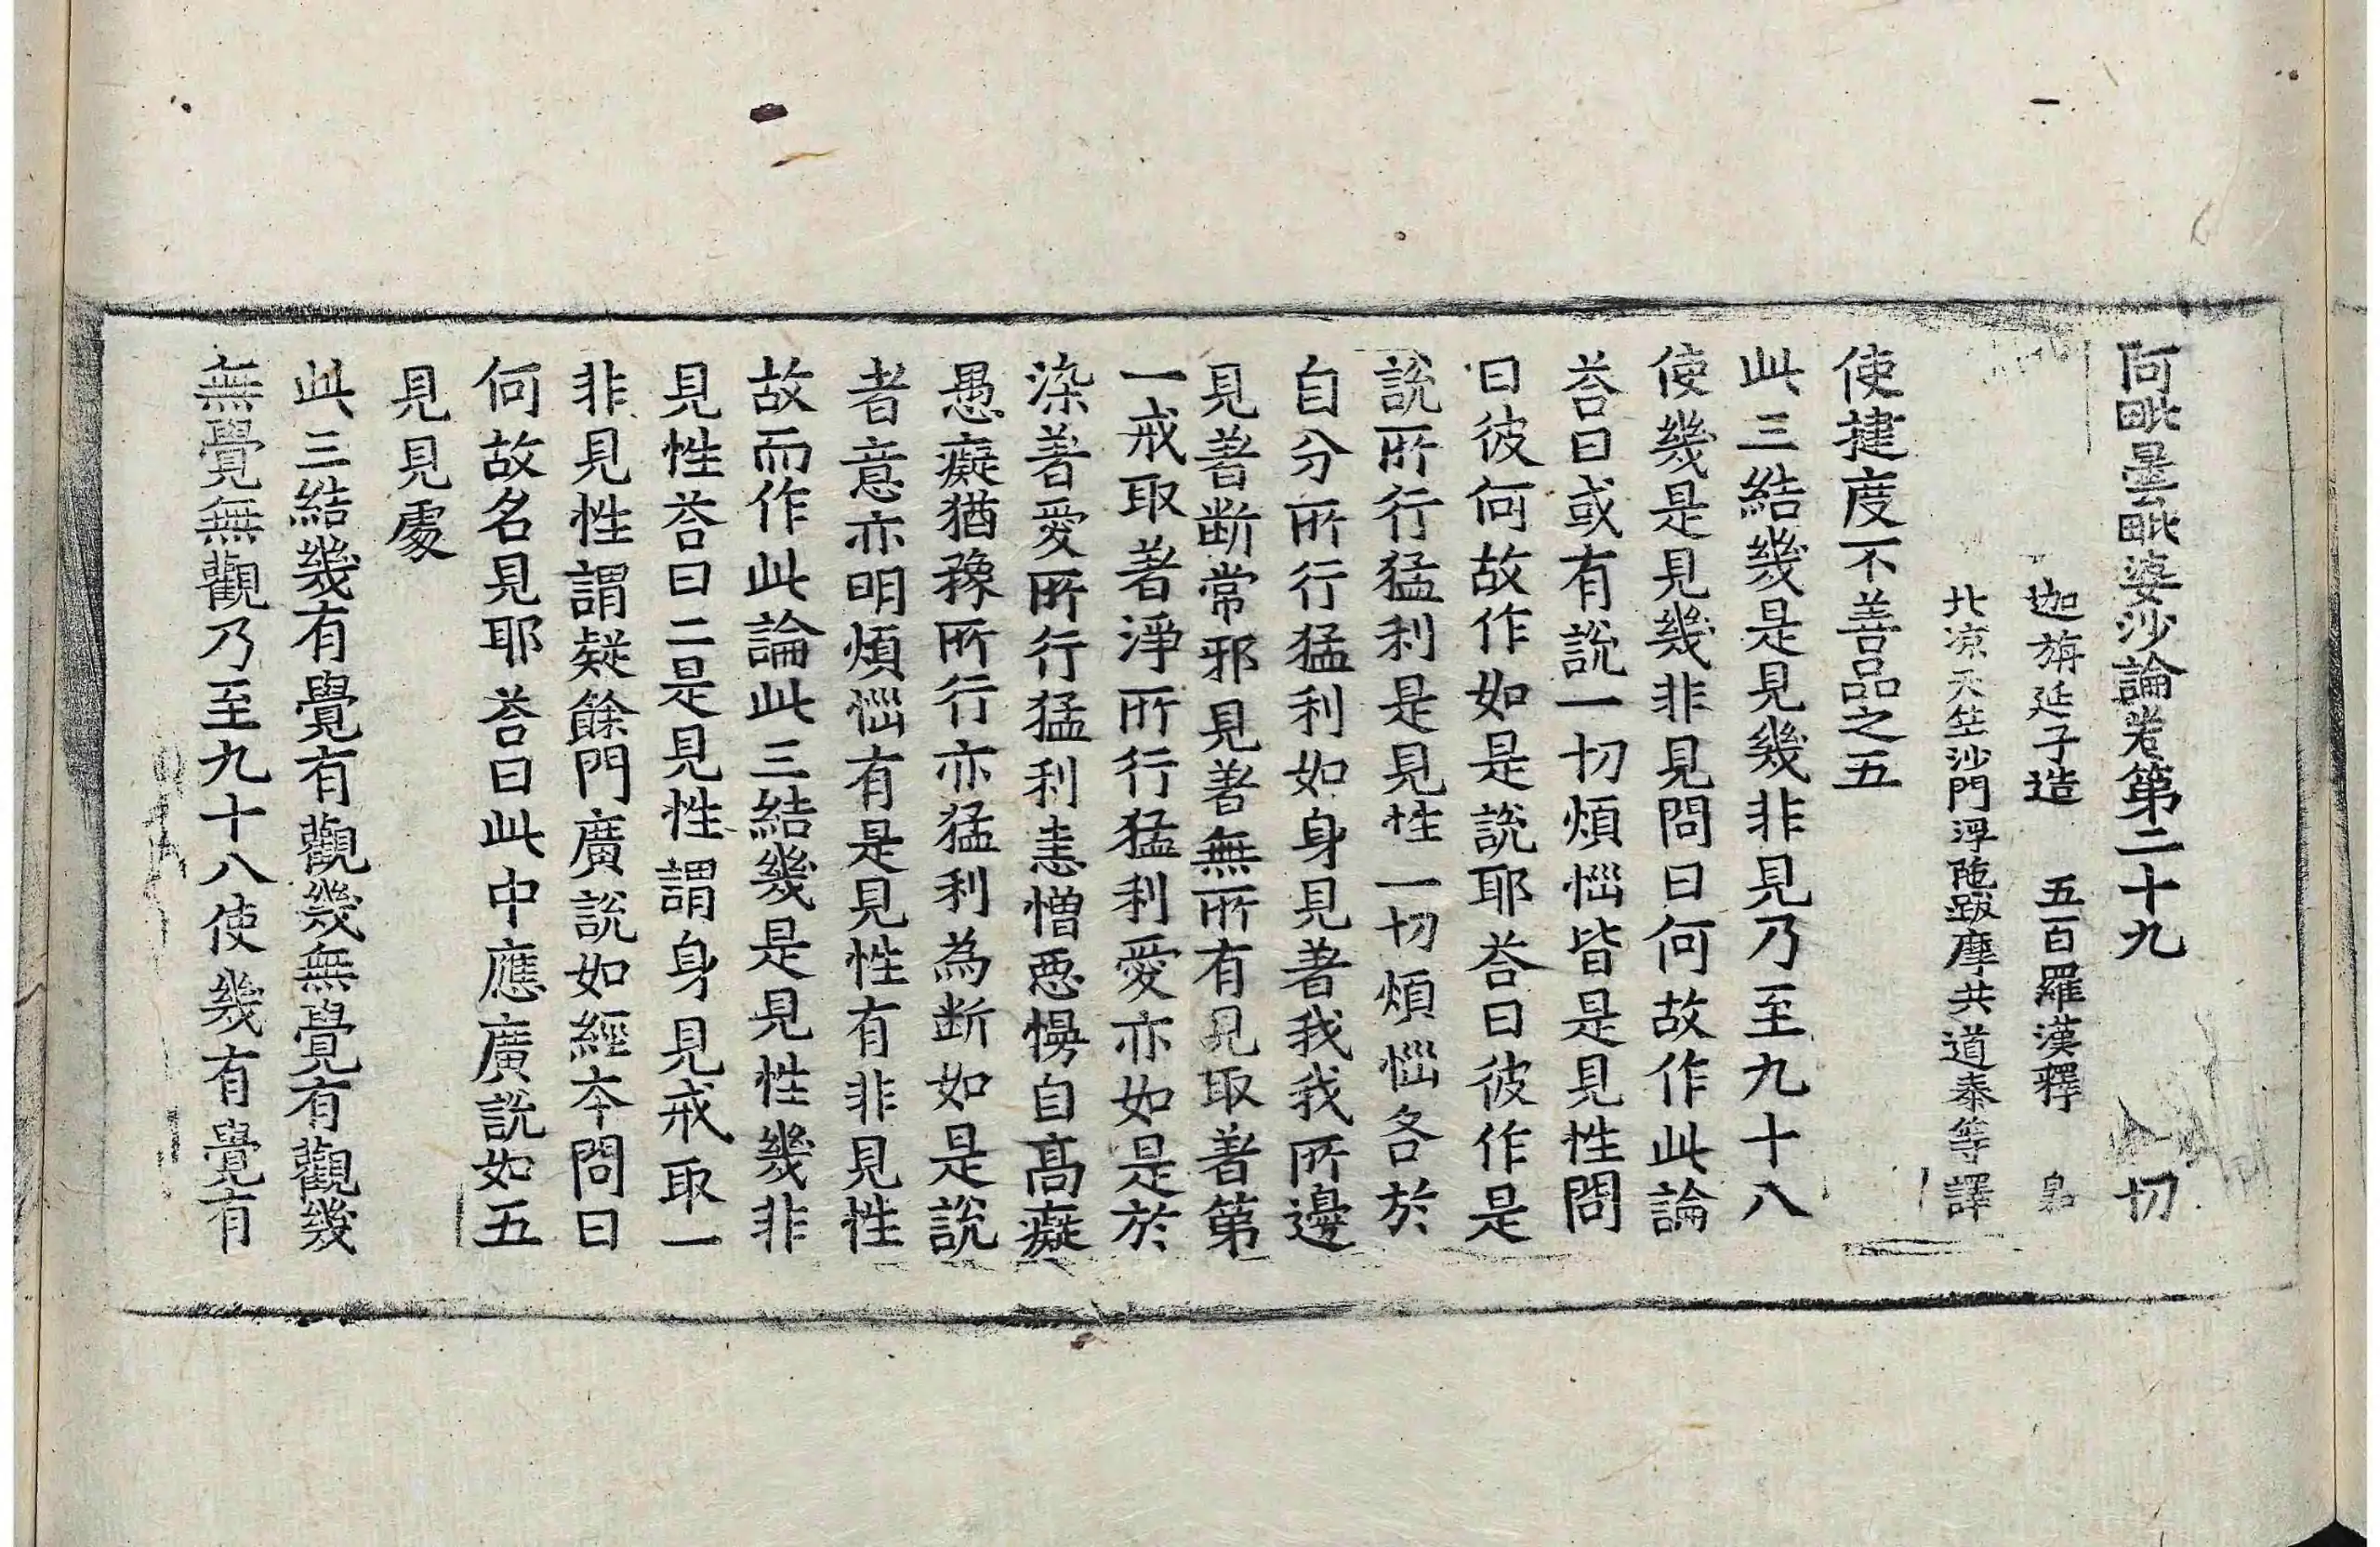 阿毗曇毗婆沙論卷第二十九 切
迦旃延子造 五百羅漢釋
北涼天竺沙門浮陁跋摩共道泰等譯
使揵度不善品之五
此三結幾是見幾非見乃至九十八
使幾是見幾非見問曰何故作此論
荅曰或有說一切煩惱皆是見性問
曰彼何故作如是說耶荅曰彼作是
說所行猛利是見性一切煩惱各於
自分所行猛利如身見著我我所邊
見著断常邪見著無所有見取著第
一戒取著淨所行猛利愛亦如是於
染著愛所行猛利恚憎惡慢自髙癡
愚癡猶豫所行亦猛利為断如是說
者意亦明煩惱有是見性有非見性
故而作此論此三結幾是見性幾非
見性荅曰二是見性謂身見戒取一
非見性謂疑餘門廣說如經夲問曰
何故名見耶荅曰此中應廣說如五
見見處
此三結幾有覺有觀幾無覺有觀幾
無覺無觀乃至九十八使幾有覺有